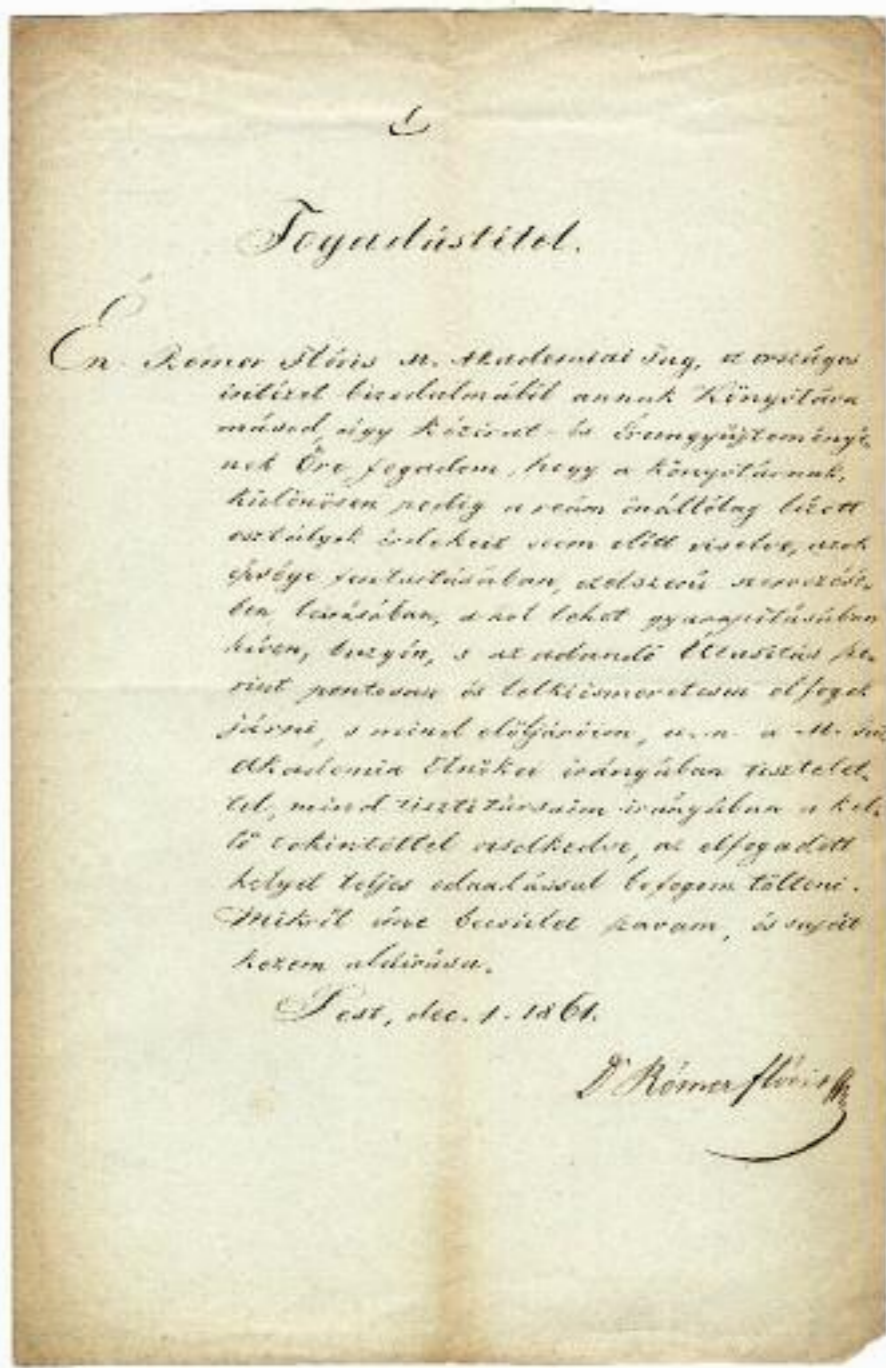 Fogadástétel.
Én Rómer Flóris M. Akademiai Tag, az országos
intézet bizodalmából annak Könyvtára
másod, úgy kézirat- és Éremgyüjteményé-
nek Őre fogadom, hogy a könyvtárnak,
különösen pedig a reám önállólag bízott
osztályok érdekeit szem előtt viselve, azok
épsége fentartásában, czélszerű
ban, s a hol lehet gyarapításában
híven, buzgón, s az adandó Utasítás sze-
rint pontosan és lelkiismeretesen elfogok
járni, s mind elöljáróim, u. n. a M.
Akademia Elnökei irányában tisztelet-
tel, mind tisztitársaim irányában a kel-
lő tekintettel viselkedve, az elfogadott
helyet teljes odaadással befogom tölteni.
Mikről íme becsület szavam, és saját
kezem aláirása.
Pest, dec. 1. 1861.
Dr Rómer Flóris